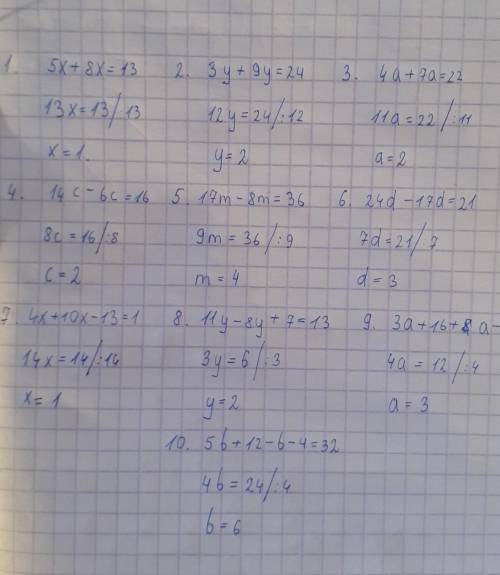 1. 5x+8x=13
13x=13/:13
x=1.
2. 3y+9y=24
12y=24/:12
y=2
3. 4a+7a=22
11a=22/:11
a=2
4. 14c-6c=16
8c=16/:8
c=2
5. 17m-8m=36
9m=36/:9
m=4
6. 24d-17d=21
7d=21/:7
d=3
7. 4x+10x-13=1
14x=14/:14
x=1
8. 11y-8y+7=13
3y=6/:3
y=2
9. 3a+16+a-
4a=12/:4
a=3
10. 5b+12-b-4=32
4b=24/:4
b=6